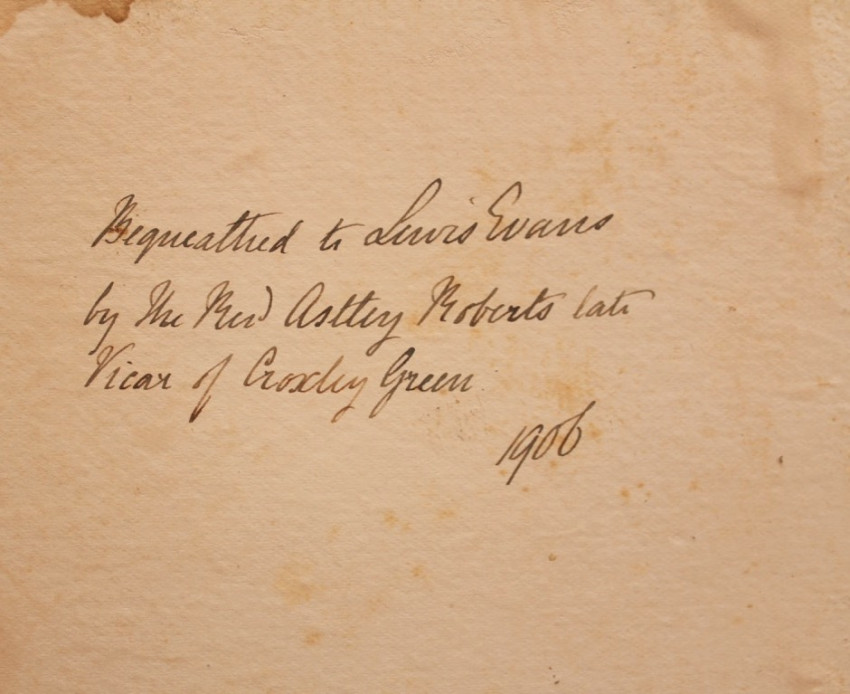 Bequeathed to Lewis Evans
by the Revd Astley Roberts late
Vicar of Croxley Green
1906